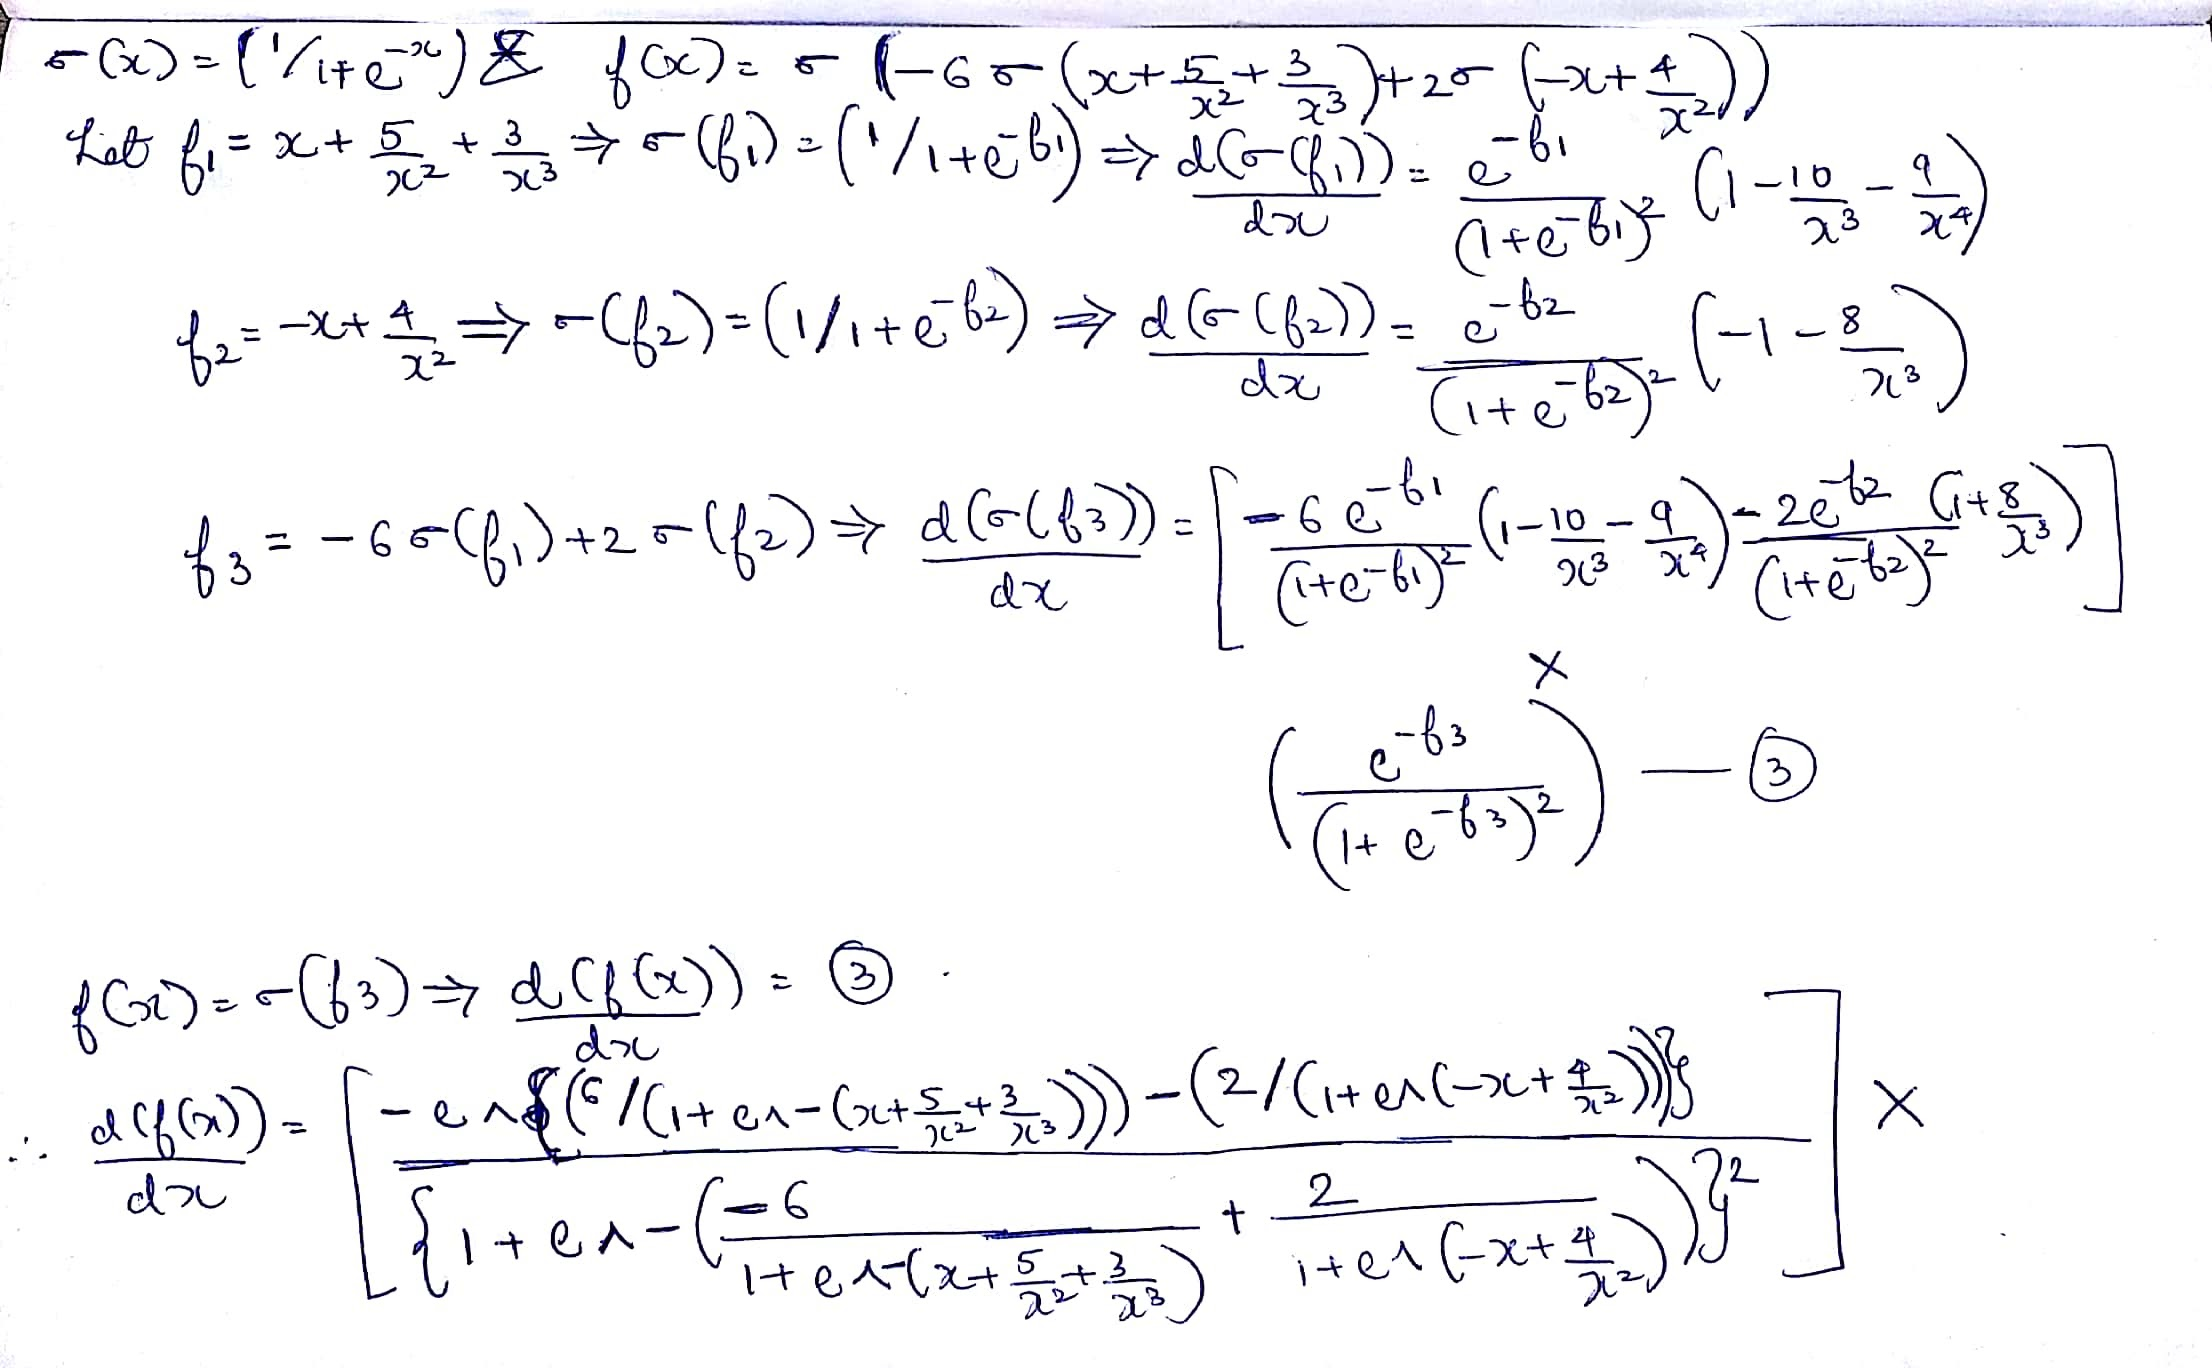 σ(x) = (1/1+e^-x) & f(x) = σ (-6σ(x + 5/x² + 3/x³) + 2σ(-x + 4/x²))
Let f₁ = x + 5/x² + 3/x³ ⇒ σ(f₁) = (1/1+e^-f₁) ⇒ d(σ(f₁))/dx = e^-f₁/(1+e^-f₁)² (1 - 10/x³ - 9/x⁴)
f₂ = -x + 4/x² ⇒ σ(f₂) = (1/1+e^-f₂) ⇒ d(σ(f₂))/dx = e^-f₂/(1+e^-f₂)² (-1 - 8/x³)
f₃ = -6σ(f₁) + 2σ(f₂) ⇒ d(σ(f₃))/dx = [-6e^-f₁/(1+e^-f₁)² (1 - 10/x³ - 9/x⁴) - 2e^-f₂/(1+e^-f₂)² (1 + 8/x³)]
×
(e^-f₃/(1+e^-f₃)²) — ③
f(x) = σ(f₃) ⇒ d(f(x))/dx = ③.
∴ d(f(x))/dx = [-e^{(6/(1+e^-(x + 5/x² + 3/x³))) - (2/(1+e^(-x + 4/x²)))}/{1+e^-(-6/1+e^-(x + 5/x² + 3/x³) + 2/1+e^(-x + 4/x²))}²] ×